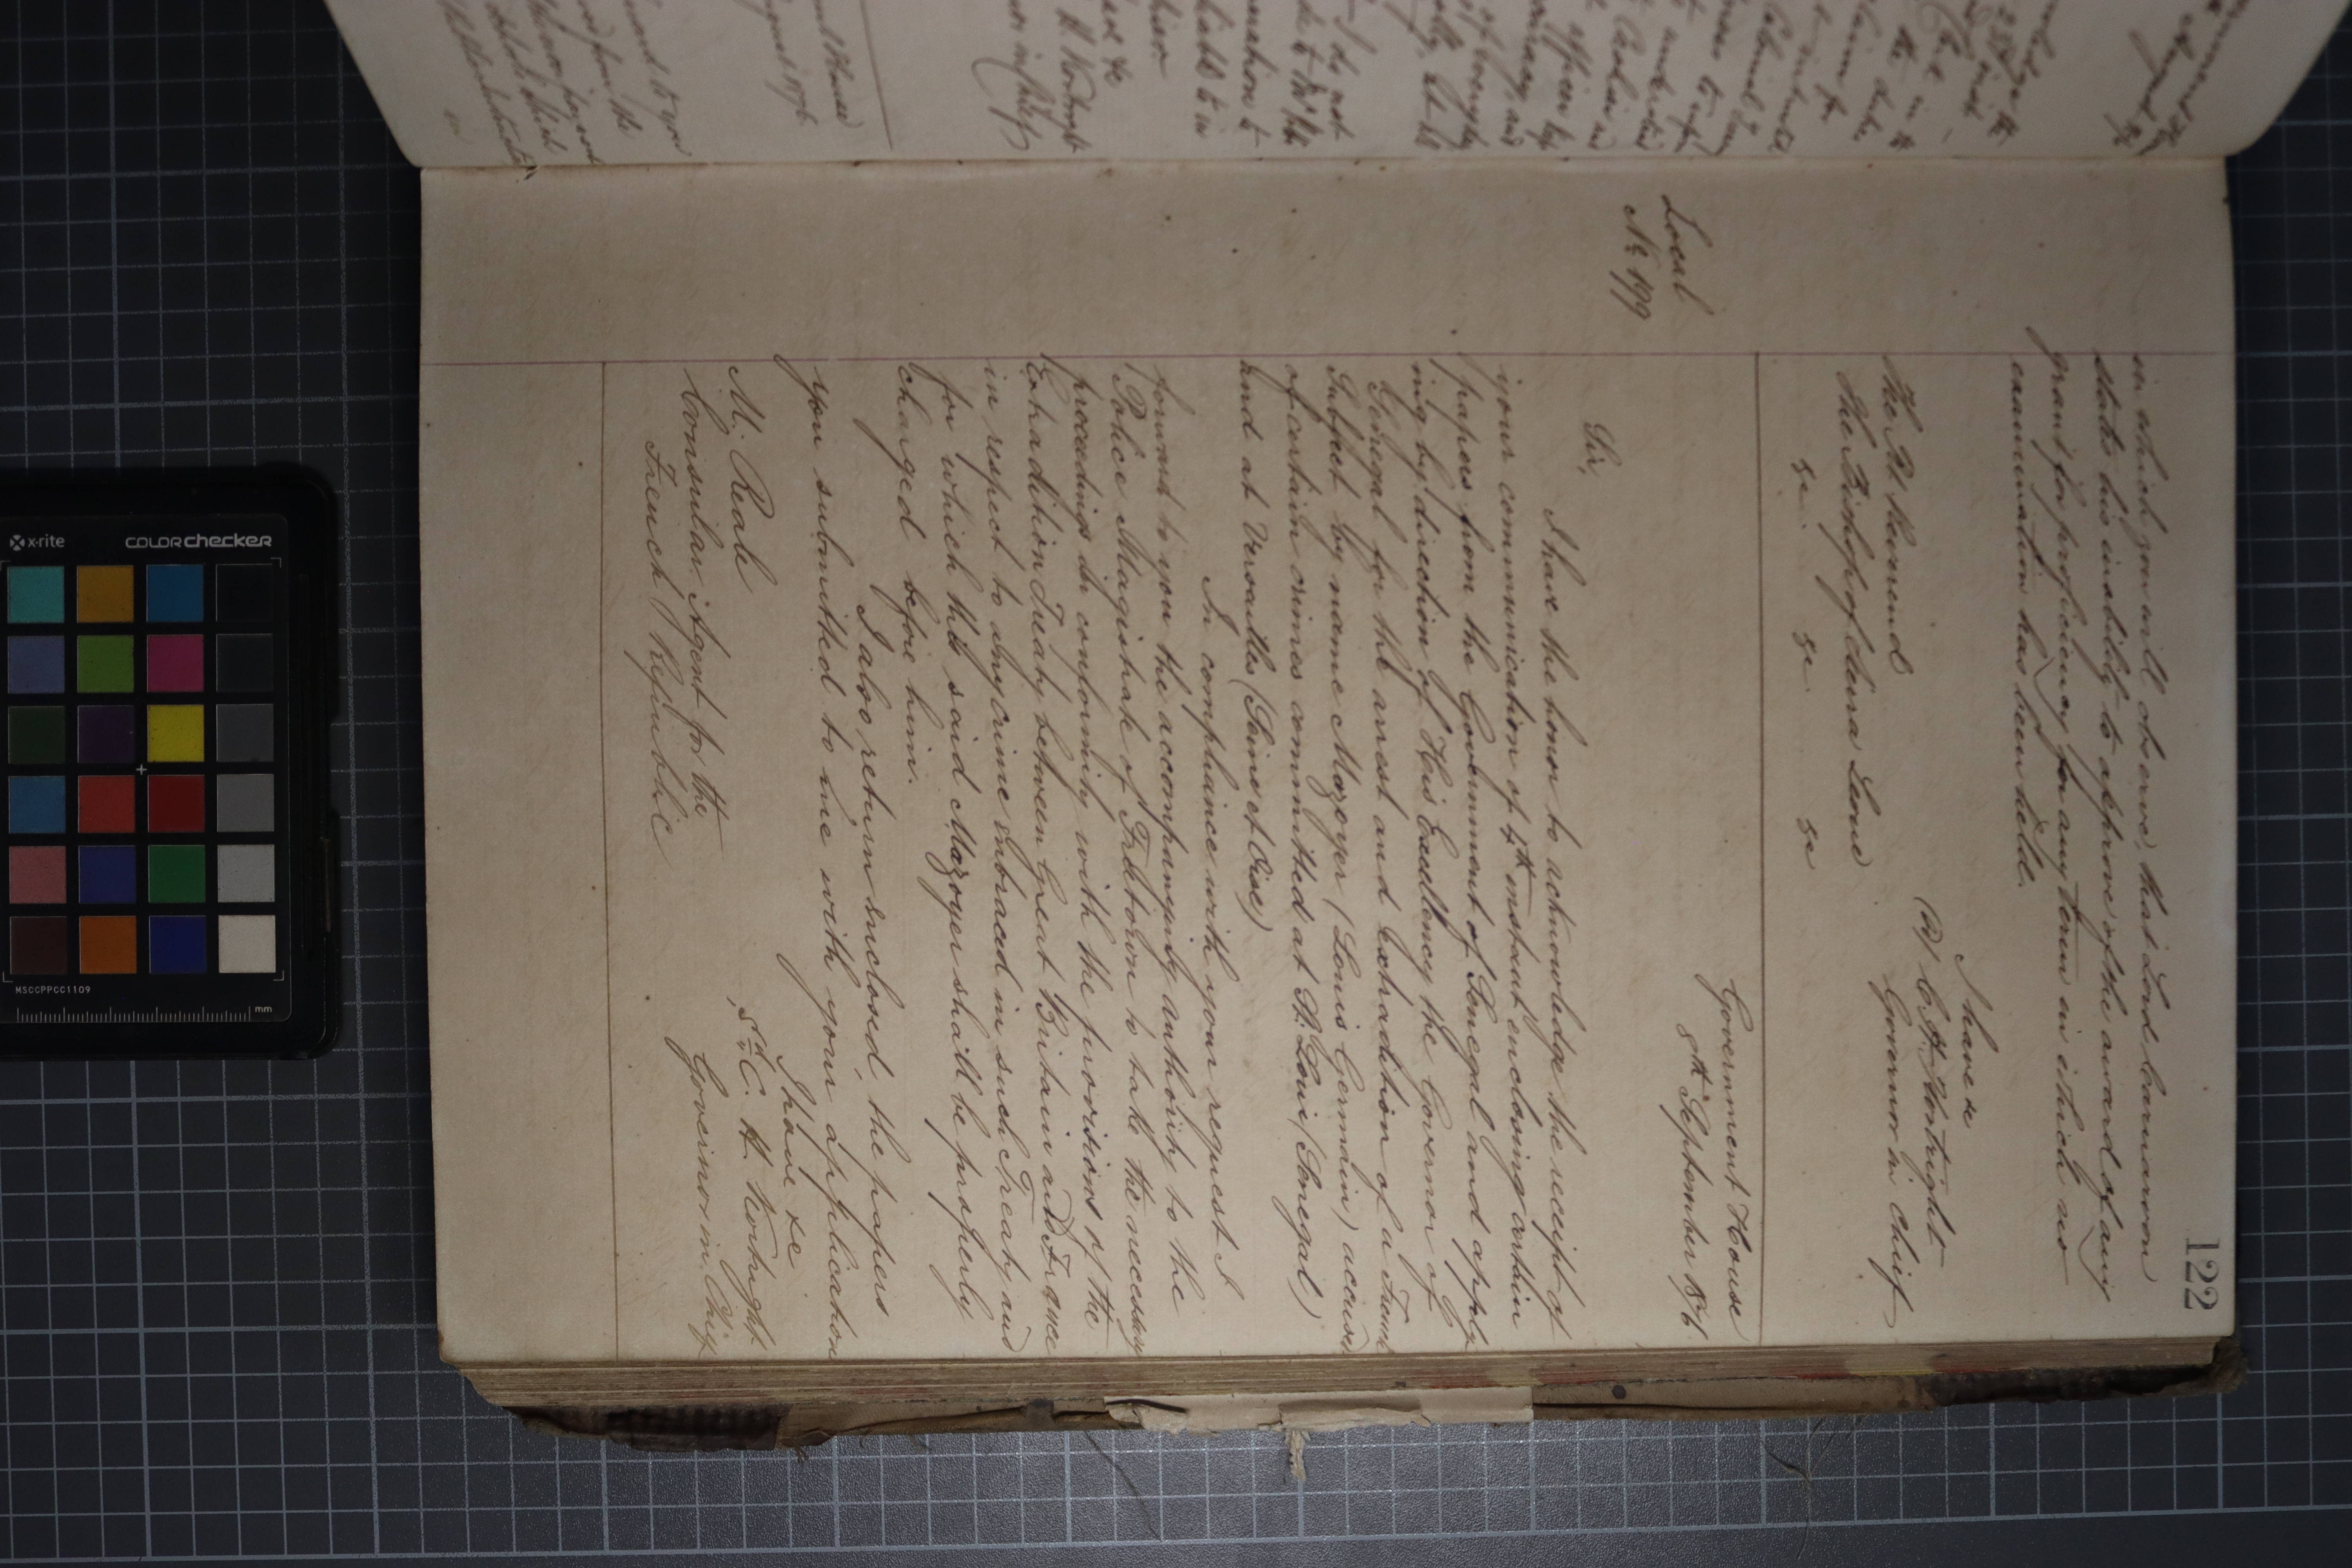 122
in which you will observe, that Lord Carnarvon
states his inability to approve of the award of any
grant for proficiency for any term in which no
examination has been held.
I have &c
(S) C. H. Kortright
Governor in Chief
The Rt Reverend
The Bishop of Sierra Leone
&c. &c. &c
Government House
8th September 1876
Local
No 199
Sir,
I have the honor to acknowledge the receipt of
your communication of 4th instant enclosing certain
papers from the Government of Senegal and apply-
ing by direction of His Excellency the Governor of
Senegal for the arrest and Extradition of a French
Subject by name Mazoyer (Louis Germain) accused
of certain crimes committed at St. Louis (Senegal)
and at Versailles (Seine et Oise)
In compliance with your request I
forward to you the accompanying authority to the
Police Magistrate of Freetown to take the necessary
proceedings in conformity with the provisions of the
Extradition Treaty between Great Britain and France
in respect to any crime embraced in such Treaty and
for which the said Mazoyer shall be properly
charged before him.
I also return enclosed, the papers
you submitted to me with your application
I have &c
Sd. C. H. Kortright
Governor in Chief
M. Reale
Consular Agent for the
French Republic
x-rite
COLORchecker
MSCCPPCC1109
mm